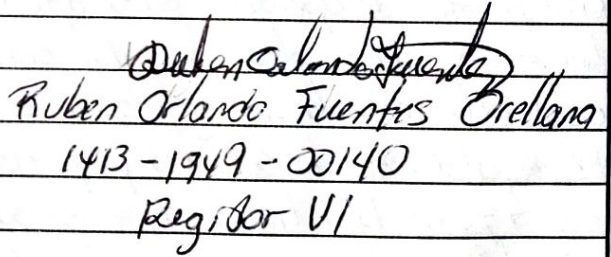 Ruben Orlando Fuentes
Ruben Orlando Fuentes Orellana
1413-1949-00140
Regidor VI